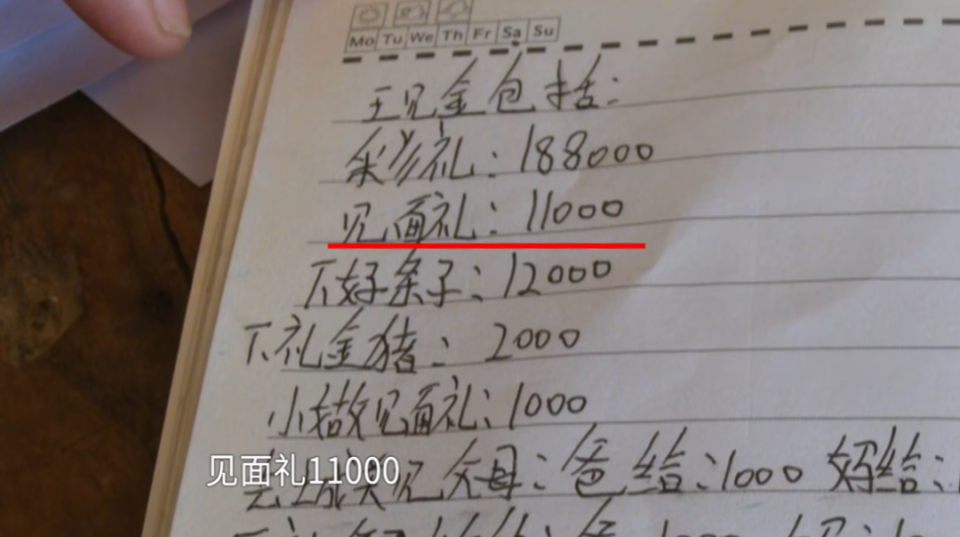 Mo Tu We Th Fr Sa Su
现金包括:
彩礼:188000
见面礼:11000
下好条子:12000
下礼金猪:2000
小妹见面礼:1000
见父母:爸给:1000 妈给:
见面礼11000